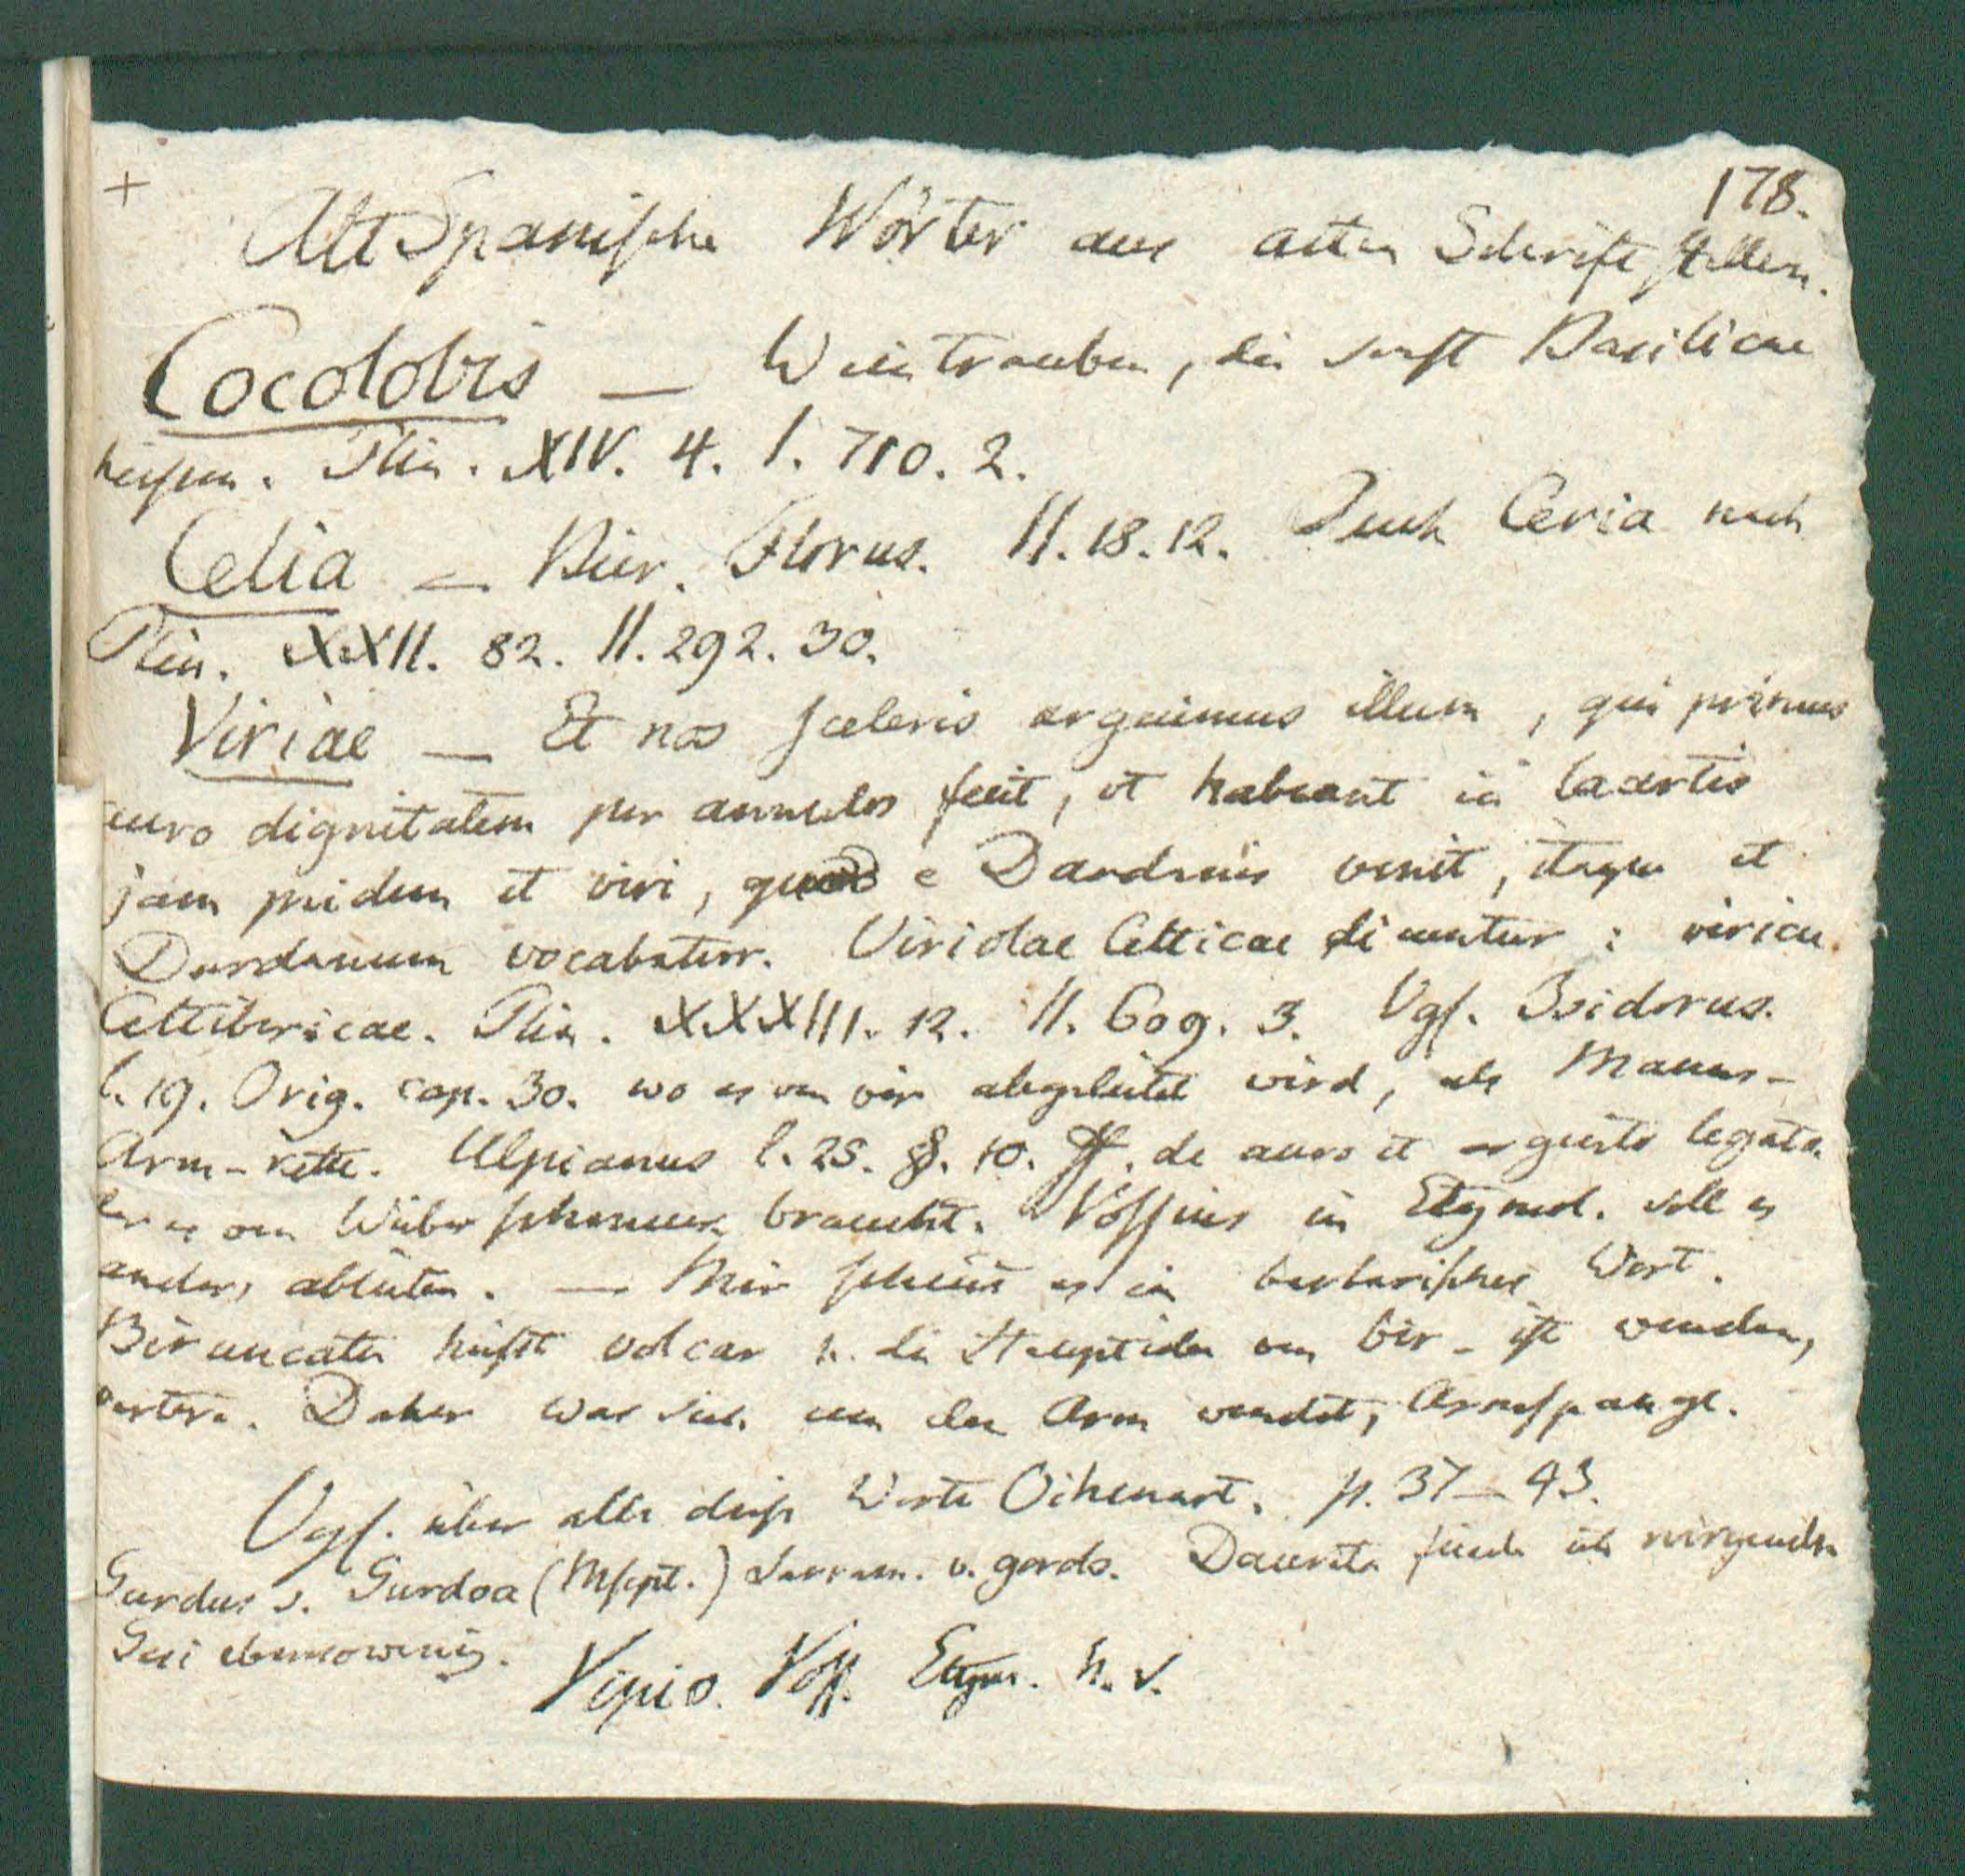 +
178.
AltSpanische Wörter aus alten Schriftstellern.
Cocolobis — Weintrauben, die sonst Basilicae
heissen. Plin. XIV. 4. I. 710. 2.
Celia — Bier. Florus. II. 18. 12. Auch Ceria nach
Plin. XXII. 82. II. 292. 30.
Viriae — Et nos sceleris arguimus illum, qui primus
auro dignitatem per annulos fecit, et habeant in lacertis
jam pridem et viri, quod e Dardanis venit, itaque et
Dardanum vocabatur. Viriolae Celticae dicuntur: viriae
Celtibericae. Plin. XXXIII. 12. II. 609. 3. Vgl. Isidorus.
l. 19. Orig. cap. 30. wo es von vir abgeleitet wird, als Manns-
Arm-kette. Ulpianus l. 25. §. 10. ff. de auro et argento legato.
der es von Weiberschmuck braucht. Vossius in Etymol. soll es
anders ableiten. — Mir scheint es ein barbarisches Wort.
Biruncatu heisst volcar u. die Hauptidee von bir - ist wenden,
vertere. Daher was sich um den Arm wendet, Armspange.
Vgl. über alle diese Worte Oihenart. p. 37–43.
Gurdus s. Gurdoa (Mscpt.) Larram. v. gordo. Daurata finde ich nirgends.
Gusi ebensowenig. Vipio. Voss. Etym. h. v.